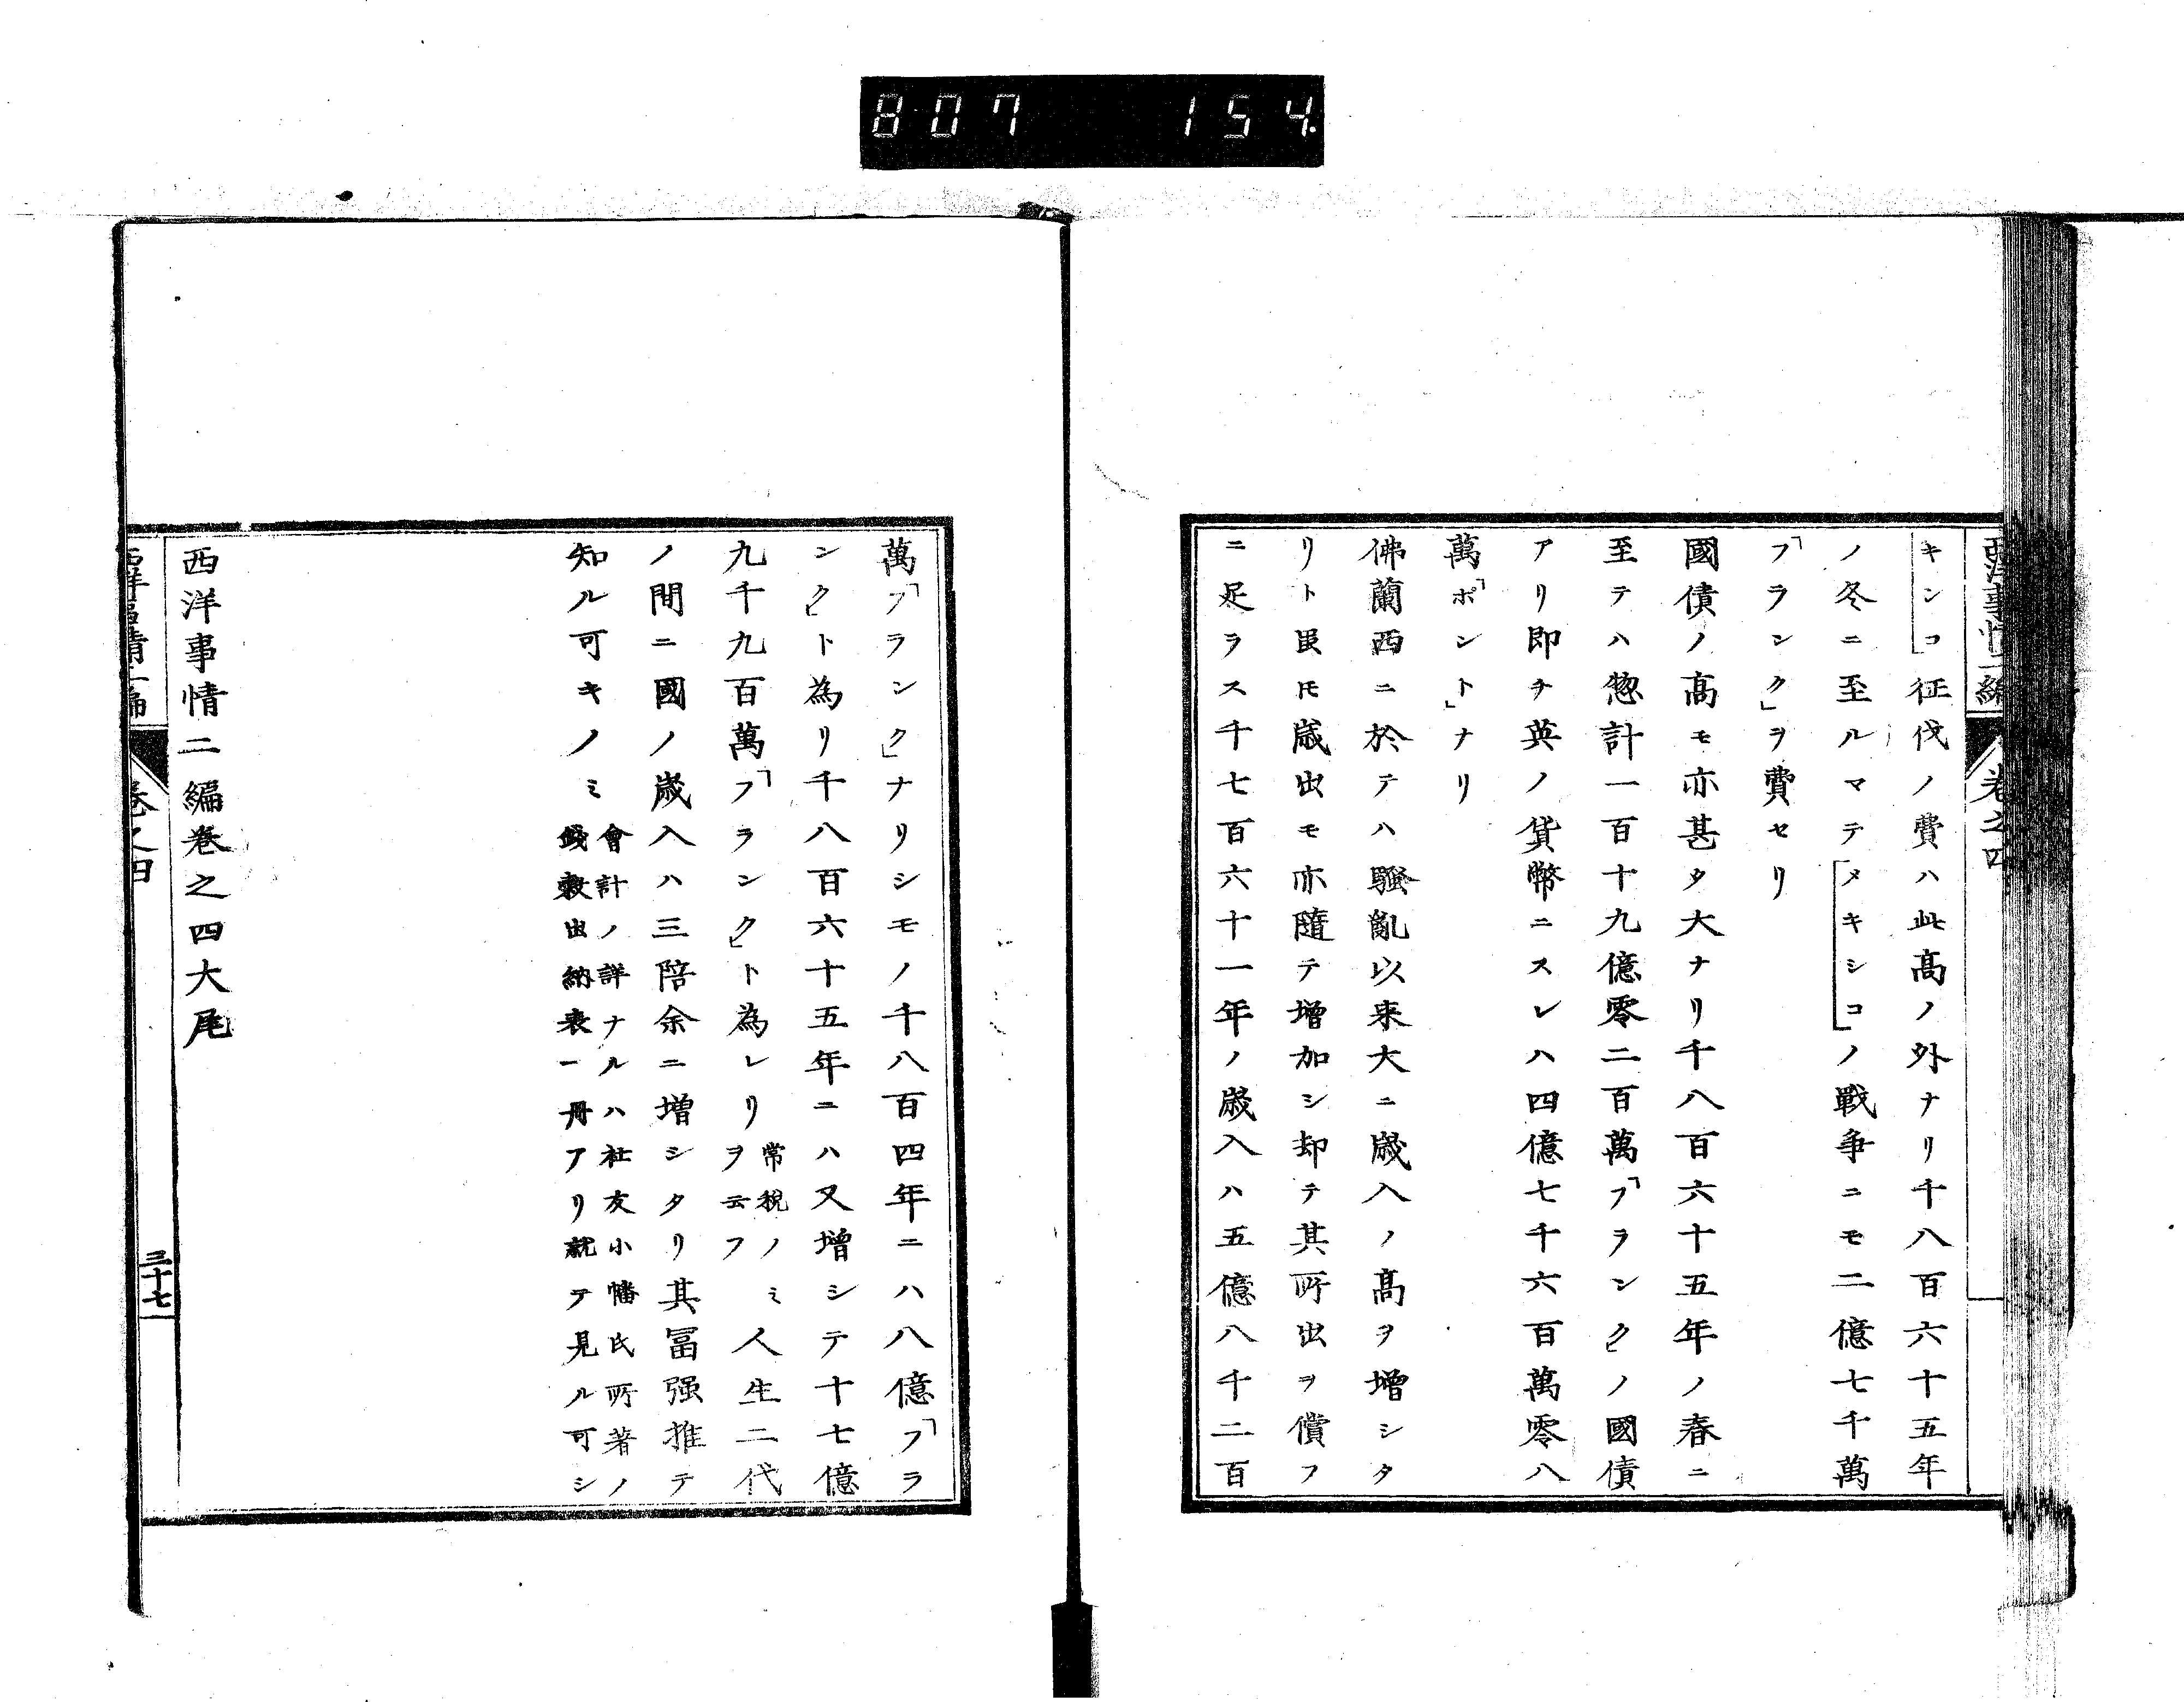 807 154
西洋事情二編 卷之四
キンコ征伐ノ費ハ此髙ノ外ナリ千八百六十五年
ノ冬ニ至ルマテメキシコノ戰爭ニモ二億七千萬
「フランク」ヲ費セリ
國債ノ髙モ亦甚タ大ナリ千八百六十五年ノ春ニ
至テハ惣計一百十九億零二百萬「フランク」ノ國債
アリ即チ英ノ貨幣ニスレハ四億七千六百萬零八
萬「ポンド」ナリ
佛蘭西ニ於テハ騷亂以来大ニ歳入ノ髙ヲ增シタ
リト䖝𪜈歳出モ亦隨テ增加シ却テ其所出ヲ償フ
ニ足ラス千七百六十一年ノ歳入ハ五億八千二百
萬「フランク」ナリシモノ千八百四年ニハ八億「フラ
ンク」ト為リ千八百六十五年ニハ又增シテ十七億
九千九百萬「フランク」ト為レリ常税ノミヲ云フ人生二代
ノ間ニ國ノ歳入ハ三陪余ニ增シタリ其冨强推テ
知ル可キノミ會計ノ詳ナルハ社友小幡氏所著ノ
銭穀出納表一冊アリ就テ見ル可シ
西洋事情二編卷之四大尾
西洋事情二編 卷之四 三十七